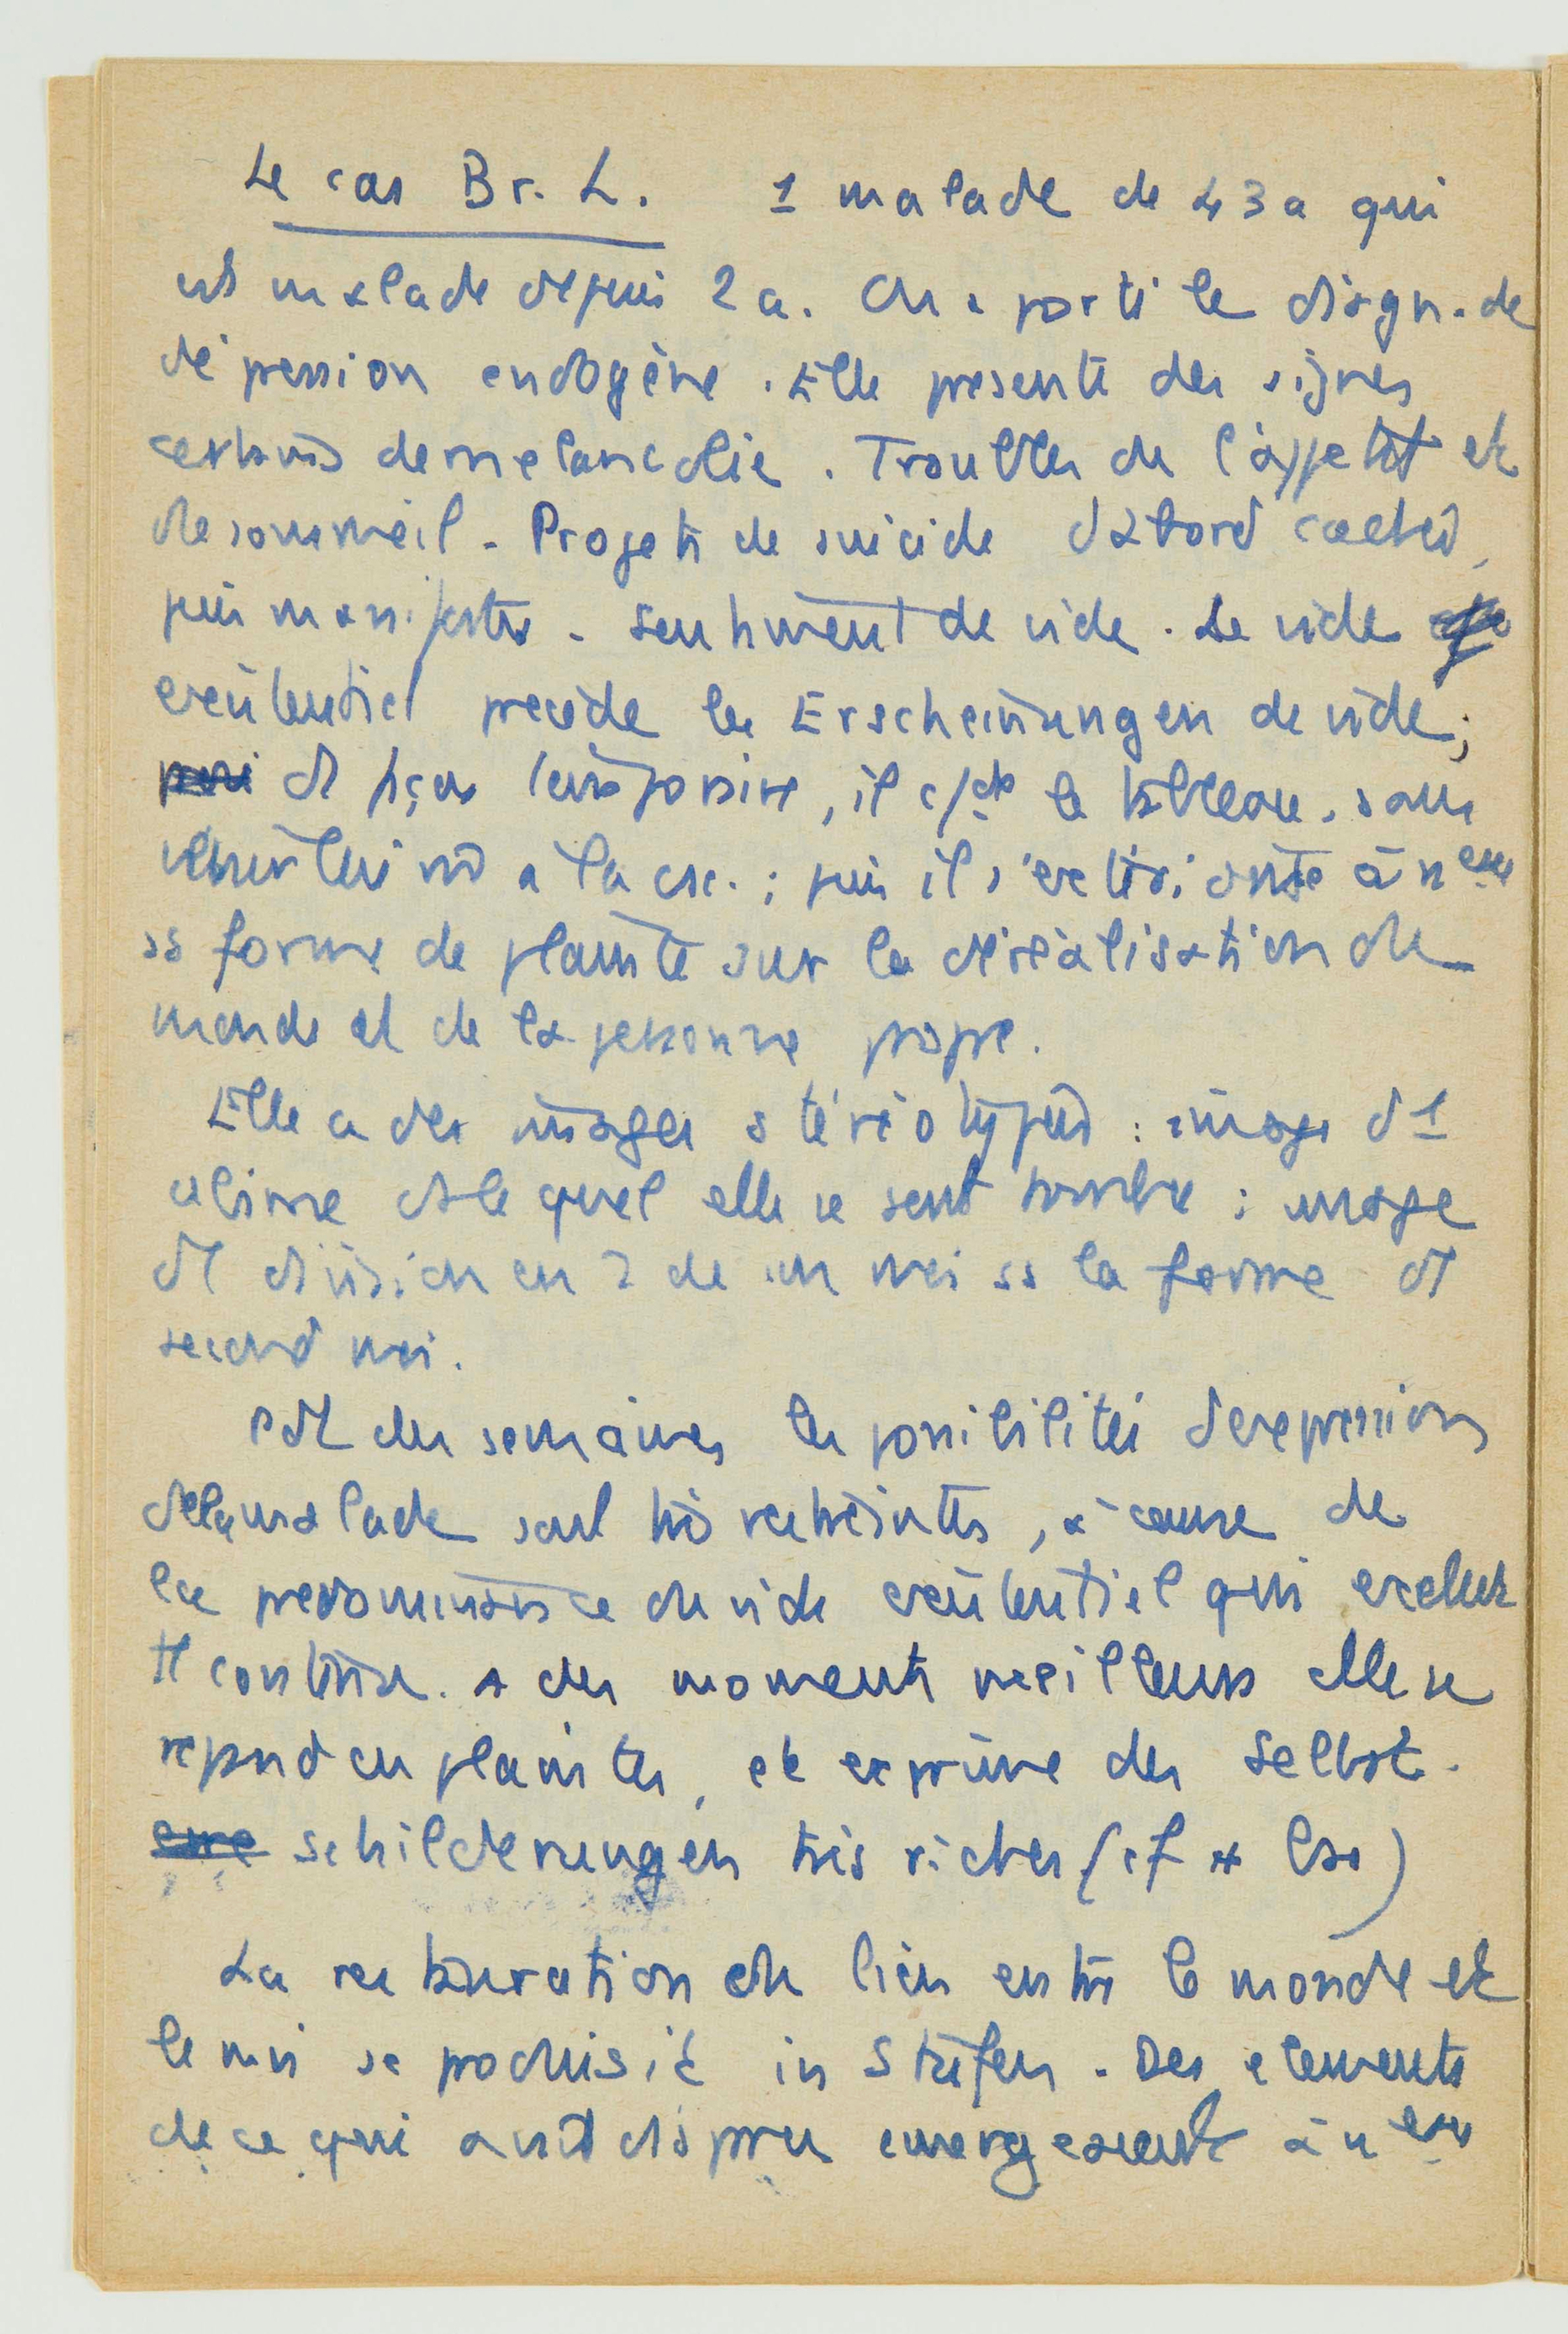 Le cas Br. L. 1 malade de 43 a qui
est malade depuis 2 a. On a porté le diagn. de
dépression endogène. Elle présente des signes
certains de mélancolie. Troubles de l'appétit et
de sommeil - Projets de suicide d'abord cachés,
puis manifestes - Sentiment de vide. Le vide
existentiel précède les Erscheinungen de vide;
d' façon, il le tableau, sans
à la csc.; puis il s'extériorise à nveau
ss forme de plainte sur la déréalisation du
monde et de la personne propre.
Elle a des images stéréotypées : image d'1
abîme ds lequel elle se sent tombée; image
d' division en 2 de son moi ss la forme d'
second moi.
pdt des semaines les possibilités d'expression
de la malade sont très restreintes, à cause de
la prédominance du vide existentiel qui exclut
tt contenu. A des moments meilleurs elle se
répand en plaintes, et exprime des Selbst-
schilderungen très riches (cf + bas)
La restauration du lien entre le monde et
le moi se produisit in Stufen. Des éléments
de ce qui avait disparu émergeaient à nveau